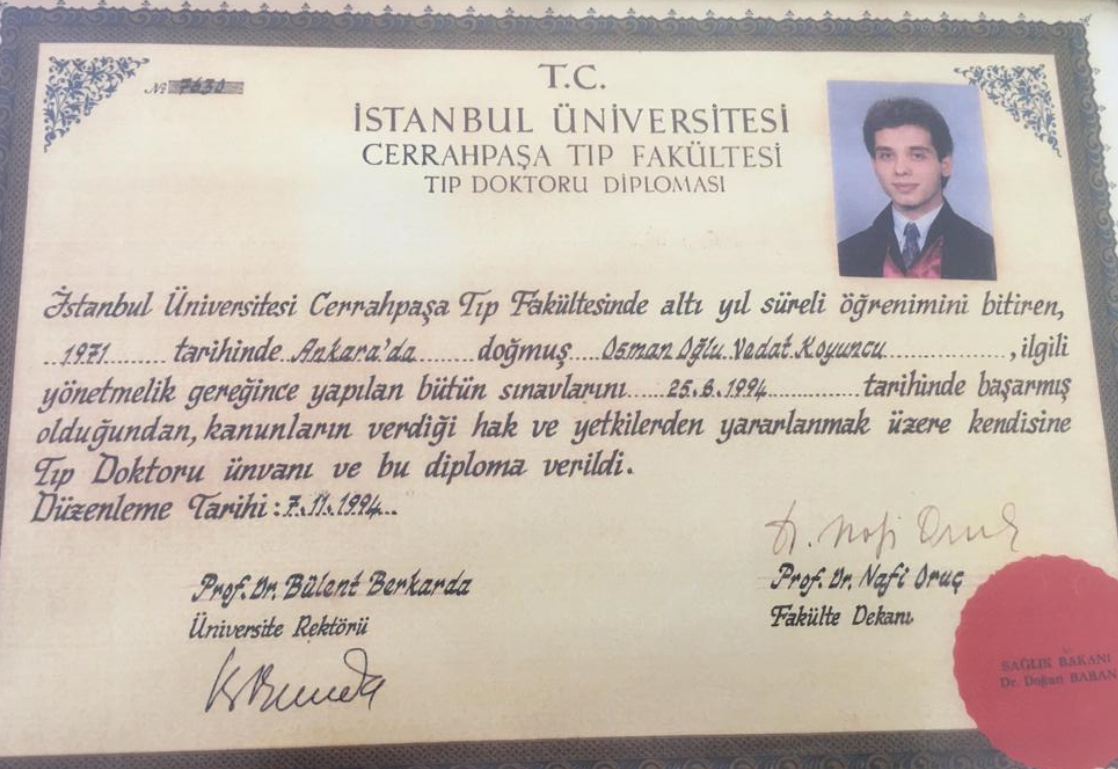 № 7630
T.C.
İSTANBUL ÜNİVERSİTESİ
CERRAHPAŞA TIP FAKÜLTESİ
TIP DOKTORU DİPLOMASI
İstanbul Üniversitesi Cerrahpaşa Tıp Fakültesinde altı yıl süreli öğrenimini bitiren,
1971 tarihinde Ankara'da doğmuş Osman Oğlu Vedat Koyuncu, ilgili
yönetmelik gereğince yapılan bütün sınavlarını tarihinde başarmış
olduğundan, kanunların verdiği hak ve yetkilerden yararlanmak üzere kendisine
Tıp Doktoru ünvanı ve bu diploma verildi.
Düzenleme Tarihi: 7.11.1994
Dr. Nafi Oruç
Prof. Dr. Bülent Berkarda
Üniversite Rektörü
Prof. Dr. Nafi Oruç
Fakülte Dekanı
SAĞLIK BAKANI
Dr. Doğan BARAN